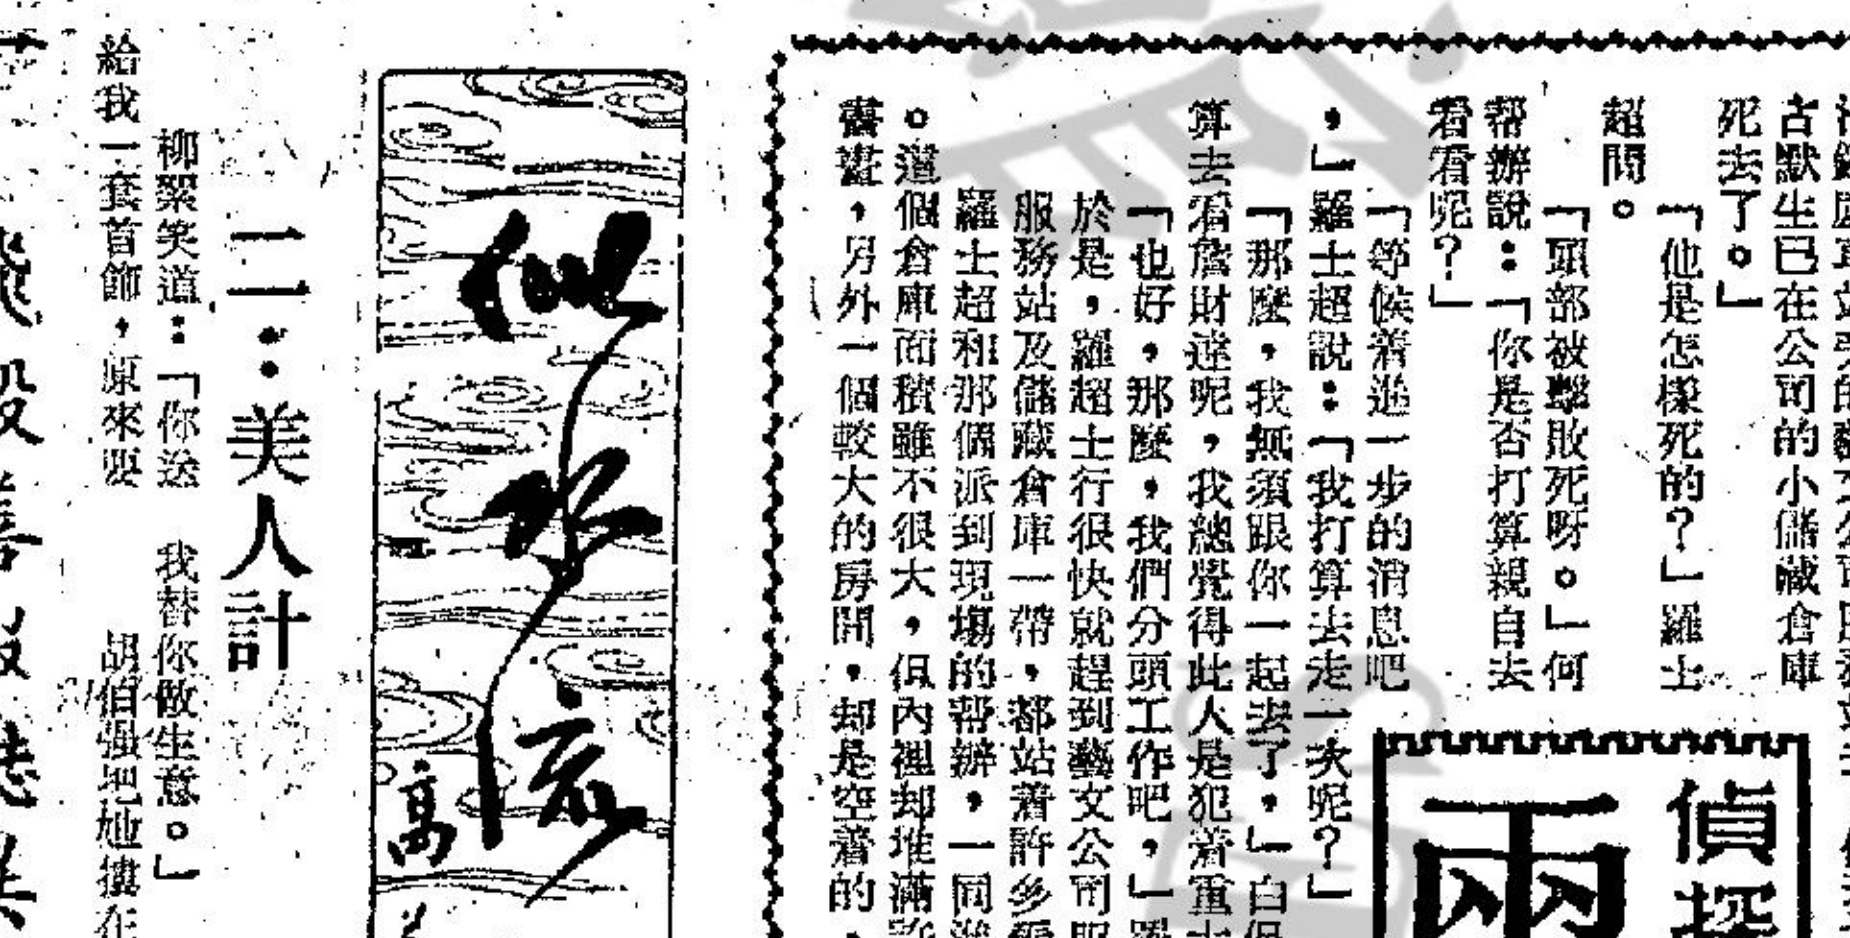 古默生已在公司的小儲藏倉庫
死去了。」
「他是怎樣死的？」羅士
超問。
「頭部被擊敗死呀。」何
帮辦說：「你是否打算親自去
看看呢？」
「等候着進一步的消息吧
，」羅士超說：「我打算去走一次呢？」
「那麼，我無須跟你一起去了，」白
算去看詹財達呢，我總覺得此人是犯着重
「也好，那麼，我們分頭工作吧，」羅
於是，羅超士行很快就趕到藝文公司服
服務站及儲藏倉庫一帶，都站着許多
羅士超和那個派到現場的帮辦，一同進
。這個倉庫面積雖不很大，但內裡却堆滿
書畫，另外一個較大的房間，却是空着的，
偵探
兩
似水流
高
二：美人計
柳絮笑道：「你送 我替你做生意。」
給我一套首飾，原來要 胡伯强把她摟在